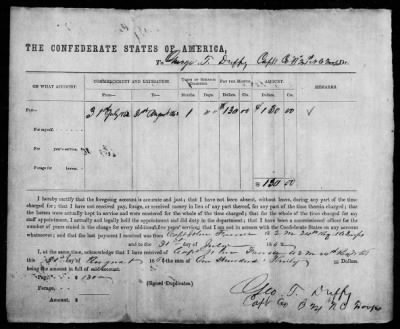 THE CONFEDERATE STATES OF AMERICA,
To George T. Duffy Capt Co B
ON WHAT ACCOUNT.
COMMENCEMENT AND EXPIRATION.
TERM OF SERVICE CHARGED.
PAY PER MONTH.
AMOUNT.
REMARKS.
From
To
Months. Days. Dollars. Cts. Dollars. Cts.
Pay—
31st July 1862 31st August 1862 1 $130 00 $130 00
For myself
For years' service,
Forage for horses,
$130 00
I hereby certify that the foregoing account is accurate and just; that I have not been absent, without leave, during any part of the time
charged for; that I have not received pay, forage, or received money in lieu of any part thereof, for any part of the time therein charged; that
the horses were actually kept in service and were mustered for the whole of the time charged; that for the whole of the time charged for my
staff appointment, I actually and legally held the appointment and did duty in the department; that I have been a commissioned officer for the
number of years stated in the charge for every additional five years' service; that I am not in arrears with the Confederate States on any account
whatsoever; and that the last payment I received was from Capt John A Q M 24th Reg
to the 31st day of July 1862
I, at the same time, acknowledge that I have received of Capt John A Q M 24th
this 31st day of August 1862 One Hundred Thirty Dollars,
being the amount in full of said account.
Pay, $130
(Signed Duplicates.)
Forage,
Amount, $
Geo. T. Duffy
Capt Co B N.C. Troops